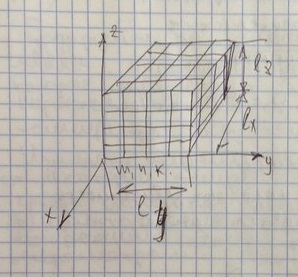 z
lz
lx
m, n, k.
y
x
l y